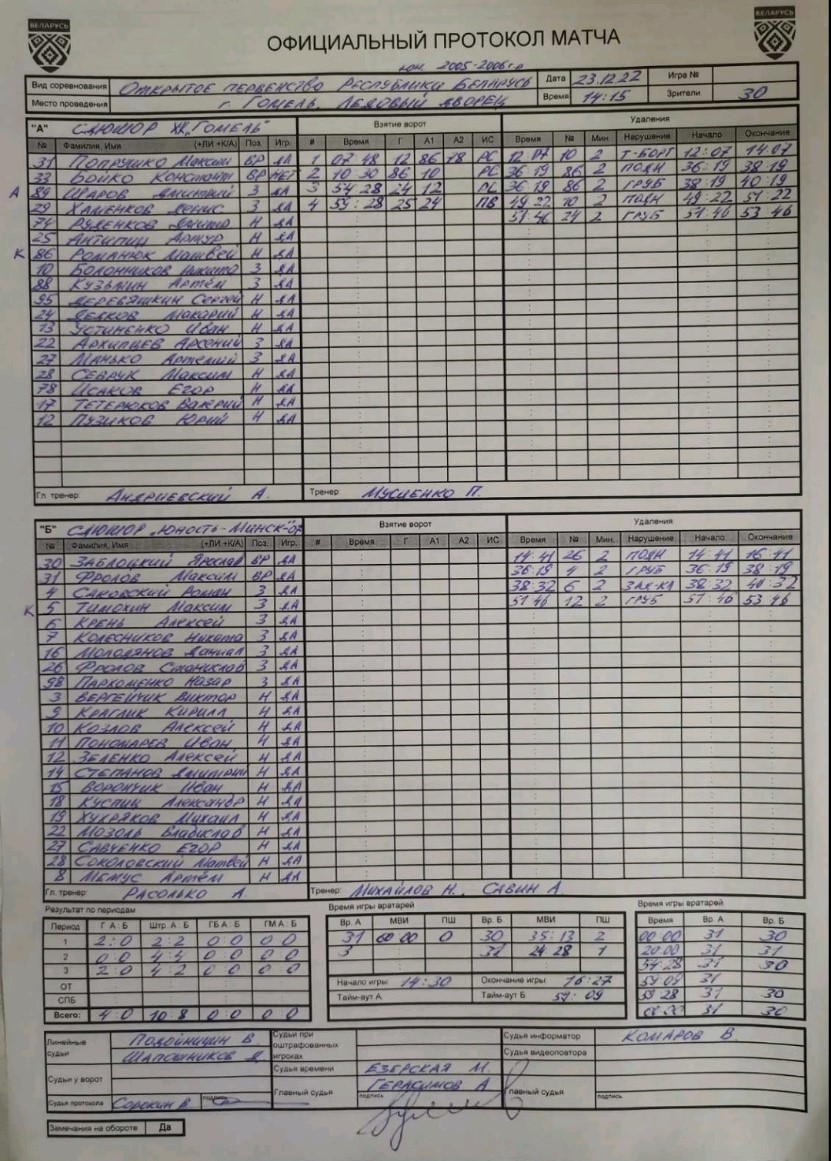 БЕЛАРУСЬ БЕЛАРУСЬ
ОФИЦИАЛЬНЫЙ ПРОТОКОЛ МАТЧА
юн. 2005-2006 г.р
Вид соревнования Открытое первенство Республики Беларусь Дата 23.12.22 Игра №
Место проведения г. Гомель, Ледовый дворец Время 14:15 Зрители 30
"А" СДЮШОР ХК "Гомель" Взятие ворот Удаления
№ Фамилия, Имя (+ЛИ +К/А) Поз. Игр. # Время Г А1 А2 ИС Время № Мин. Нарушение Начало Окончание
31 Попрушко Максим ВР ДА 1 07 48 12 86 78 РС 12 07 10 2 Т-БОРТ 12:07 14 07
33 Бойко Константин ВР НЕТ 2 10 30 86 10 РС 36 19 86 2 ПОДН 36:19 38 19
А 89 Шаров Дмитрий З ДА 3 54 28 24 12 РС 36 19 86 2 ГРУБ 38 19 40 19
29 Хаменков Денис З ДА 4 59:28 25 24 ПВ 49 22 10 2 ПОДН 49:22 51 22
74 Руденков Н ДА 51 46 24 2 ГРУБ 51:46 53 46
25 Антипин Артур Н ДА
К 86 Романюк Матвей Н ДА
10 Болонников Никита З ДА
88 Кузьмин Артём З ДА
95 Деревяшкин Сергей Н ДА
24 Дедков Макарий Н ДА
13 Устиненко Иван Н ДА
22 Архипцев Арсений З ДА
27 Манько Артемий З ДА
28 Севрук Максим Н ДА
78 Исаков Егор Н ДА
17 Тетерюков Валерий Н ДА
12 Пузиков Юрий Н ДА
Гл. тренер: Андриевский А. Тренер Мусиенко П.
"Б" СДЮШОР "Юность-Минск" Взятие ворот Удаления
№ Фамилия, Имя (+ЛИ +К/А) Поз. Игр. # Время Г А1 А2 ИС Время № Мин. Нарушение Начало Окончание
30 Заблоцкий Ярослав ВР ДА 14:41 26 2 ПОДН 14:41 16 41
31 Фролов Максим ВР ДА 36:19 4 2 ГРУБ 36:19 38:19
4 Саковский Роман З ДА 38:32 6 2 38:32 40:32
К 5 Тимохин Максим З ДА 51 46 12 2 ГРУБ 51:46 53 46
6 Крень Алексей З ДА
7 Колесников Никита З ДА
16 Молодянов Даниил З ДА
26 Фролов Станислав З ДА
98 Пархоменко Назар З ДА
3 Бергейчик Виктор Н ДА
9 Краглик Кирилл Н ДА
10 Козлов Алексей Н ДА
11 Пономарев Иван Н ДА
12 Зеленко Алексей Н ДА
14 Степанов Дмитрий Н ДА
15 Ворончук Иван Н ДА
18 Куспиц Александр Н ДА
19 Худряков Михаил Н ДА
22 Мозоль Владислав Н ДА
27 Савченко Егор Н ДА
28 Соколовский Матвей Н ДА
8 Мемус Артём Н ДА
Гл. тренер: Расолько А. Тренер: Михайлов Н., Савин А.
Результат по периодам Время игры вратарей Время игры вратарей
Период Г А : Б Штр. А : Б ГБ А : Б ГМ А : Б Вр. А МВИ ПШ Вр. Б МВИ ПШ Время Вр. А Вр. Б
1 2:0 2:2 0 0 0 0 31 60 00 0 30 35:13 2 00:00 31 30
2 0 0 4:4 0 0 0 0 3 31 24 28 1 20:00 31 31
3 2 0 4 2 0 0 0 0 54 28 31 30
ОТ Начало игры 14:30 Окончание игры 16:27 59 09 31
СПБ Тайм-аут А Тайм-аут Б 59:09 59 28 31 30
Всего: 4 0 10 8 0 0 0 0 31 30
Линейные судьи Подойницин В. Судьи при оштрафованных игроках Судья информатор Комаров В.
Шапошников Д. Судья видеоповтора
Судьи у ворот Судья времени Езерская М.
Главный судья Герасимов А Главный судья
Судья протокола Сорокин В. подпись подпись подпись
Замечания на обороте Да